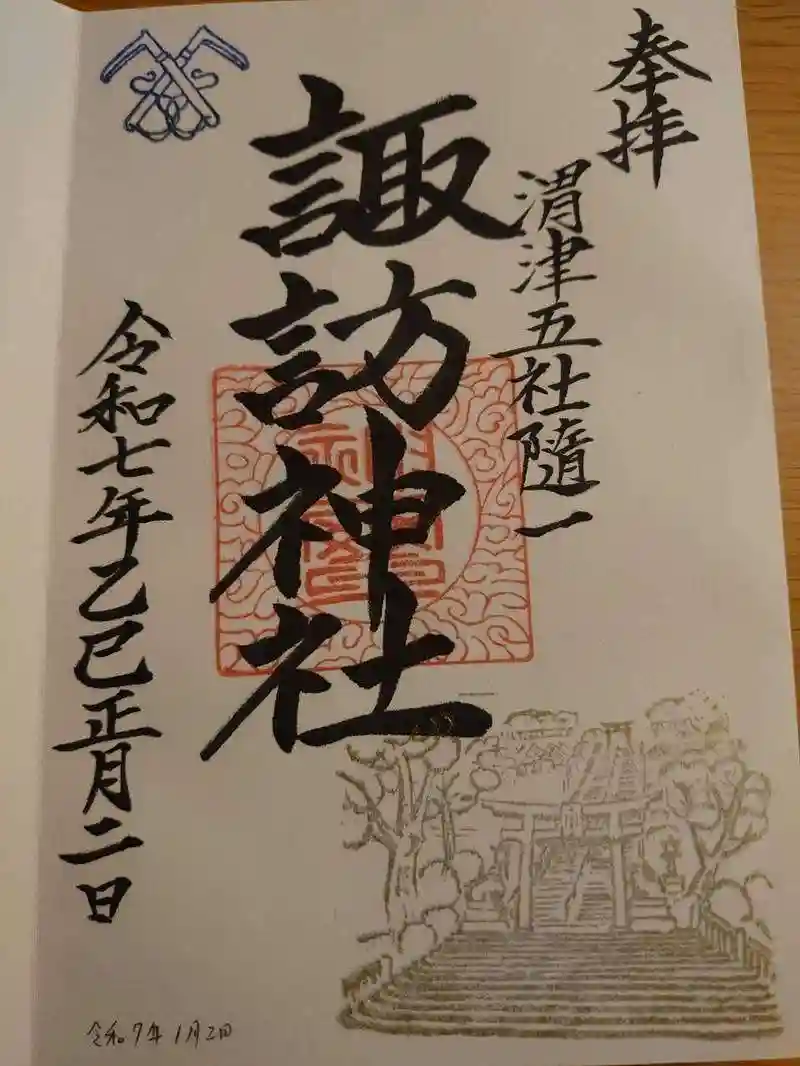 奉拝
渭津五社隨一
諏訪神社
令和七年乙巳正月二日
令和7年1月2日